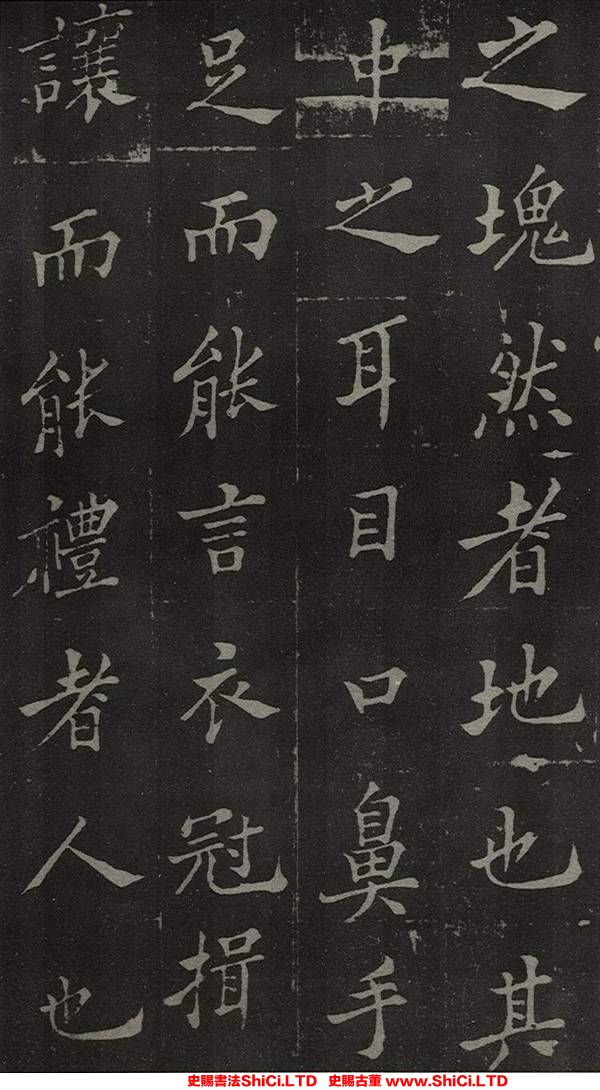 之塊然者地也其
中之耳目口鼻手
足而能言衣冠揖
讓而能禮者人也
史賜書法ShiCi.LTD 史賜古董 www.ShiCi.LTD